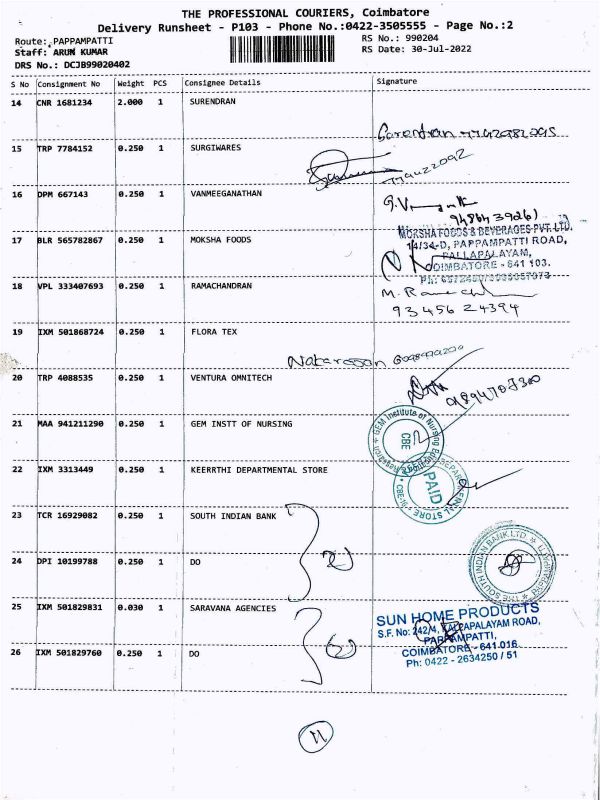 THE PROFESSIONAL COURIERS, Coimbatore
Delivery Runsheet - P103 - Phone No.:0422-3505555 - Page No.:2
Route: PAPPAMPATTI
RS No.: 990204
Staff: ARUN KUMAR
RS Date: 30-Jul-2022
DRS No.: DCJB99020402
S No Consignment No Weight PCS Consignee Details Signature
14 CNR 1681234 2.000 1 SURENDRAN
15 TRP 7784152 0.250 1 SURGIWARES
16 DPM 667143 0.250 1 VANMEEGANATHAN
9486439261
17 BLR 565782867 0.250 1 MOKSHA FOODS
MOKSHA FOODS & BEVERAGES PVT. LTD.
14/34-D, PAPPAMPATTI ROAD,
PALLAPALAYAM,
COIMBATORE - 641 103.
18 VPL 333407693 0.250 1 RAMACHANDRAN
93456 24394
19 IXM 501868724 0.250 1 FLORA TEX
20 TRP 4088535 0.250 1 VENTURA OMNITECH
21 MAA 941211290 0.250 1 GEM INSTT OF NURSING
GEM Institute of Nursing
CBE
22 IXM 3313449 0.250 1 KEERRTHI DEPARTMENTAL STORE
PAID
23 TCR 16929082 0.250 1 SOUTH INDIAN BANK
24 DPI 10199788 0.250 1 DO
THE SOUTH INDIAN BANK LTD.
25 IXM 501829831 0.030 1 SARAVANA AGENCIES
SUN HOME PRODUCTS
S.F. No: 242/4, PALLAPALAYAM ROAD,
PAPPAMPATTI,
COIMBATORE - 641 016
Ph: 0422 - 2634250 / 51
26 IXM 501829760 0.250 1 DO
11